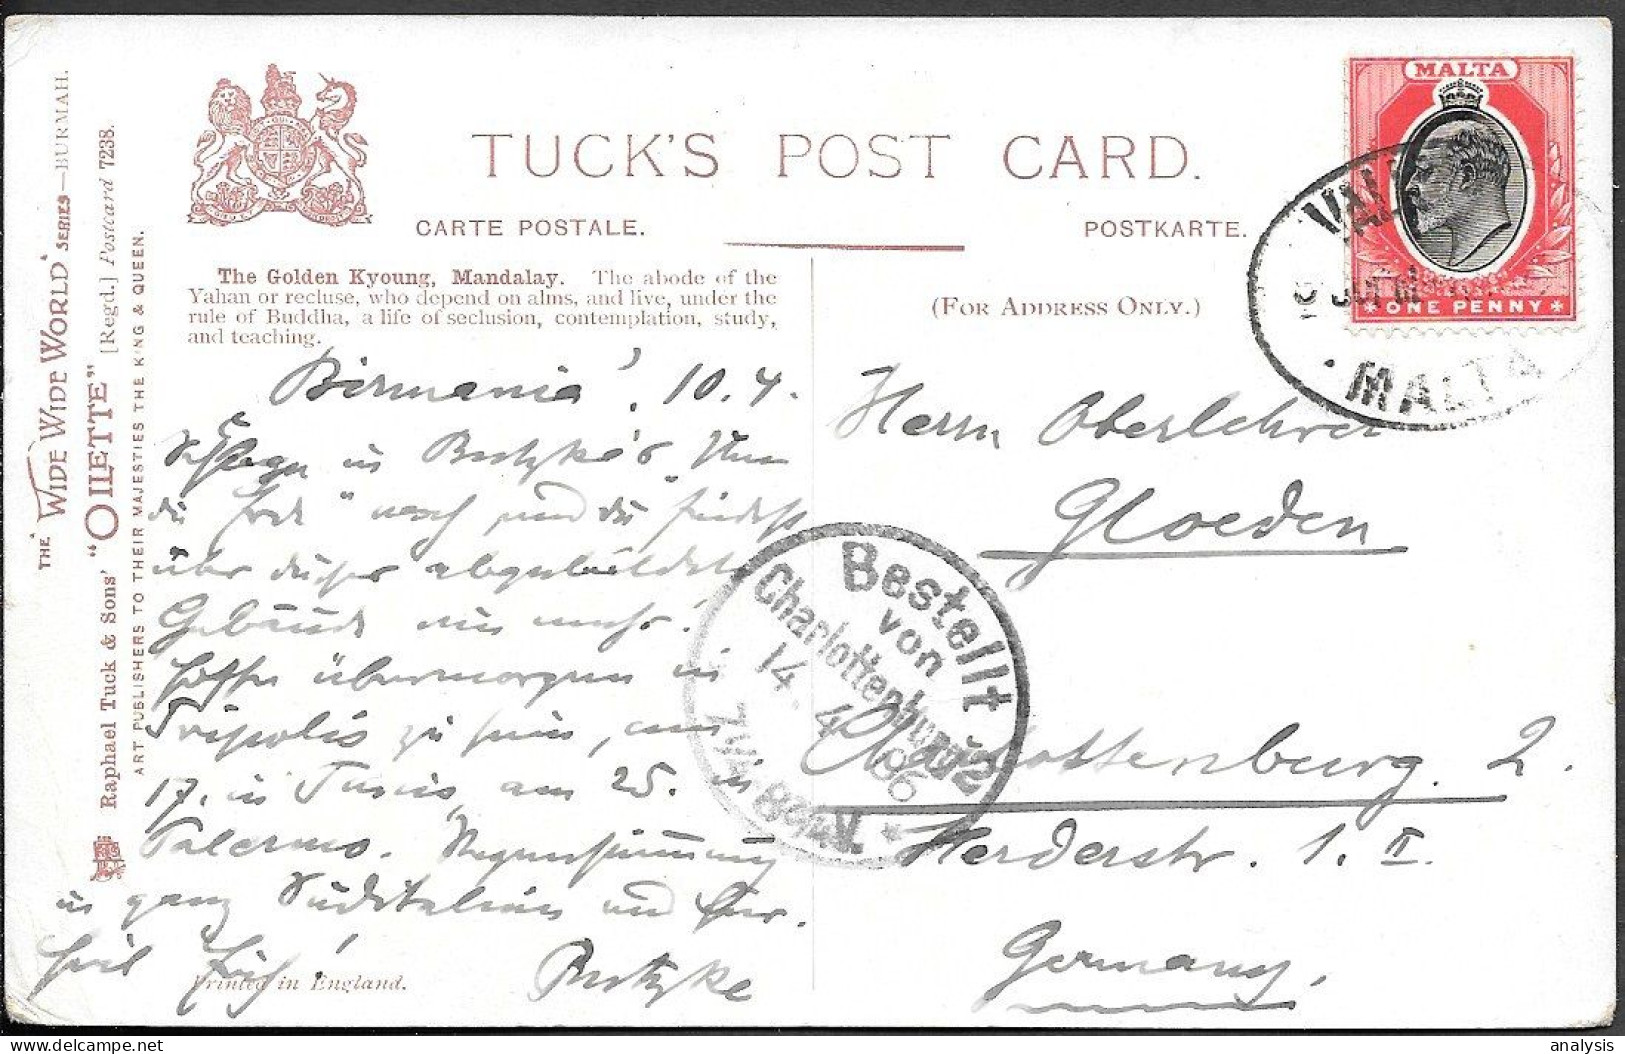 THE "WIDE WIDE WORLD" SERIES—BURMAH.
Raphael Tuck & Sons' "OILETTE" [Regd.] Postcard 7238.
ART PUBLISHERS TO THEIR MAJESTIES THE KING & QUEEN.
TUCK'S POST CARD.
CARTE POSTALE.
POSTKARTE.
MALTA
ONE PENNY
MALTA
The Golden Kyoung, Mandalay. The abode of the
Yahan or recluse, who depend on alms, and live, under the
rule of Buddha, a life of seclusion, contemplation, study,
and teaching.
(FOR ADDRESS ONLY.)
Birmania, 10.4.
Schlage in "Um
die Erde" nach und du findest
über dieses abgebildete
Gebäude
Hoffe übermorgen in
Tripolis zu sein, am
17. in Tunis, am 25. in
Palermo.
in ganz Süditalien und
Herrn Oberlehrer
Gloeden
Charlottenburg 2.
Herderstr. 1. II.
Germany,
Bestellt
von
Charlottenburg 2
14. 4. 06
7¼-8¼ V.
Printed in England.
analysis